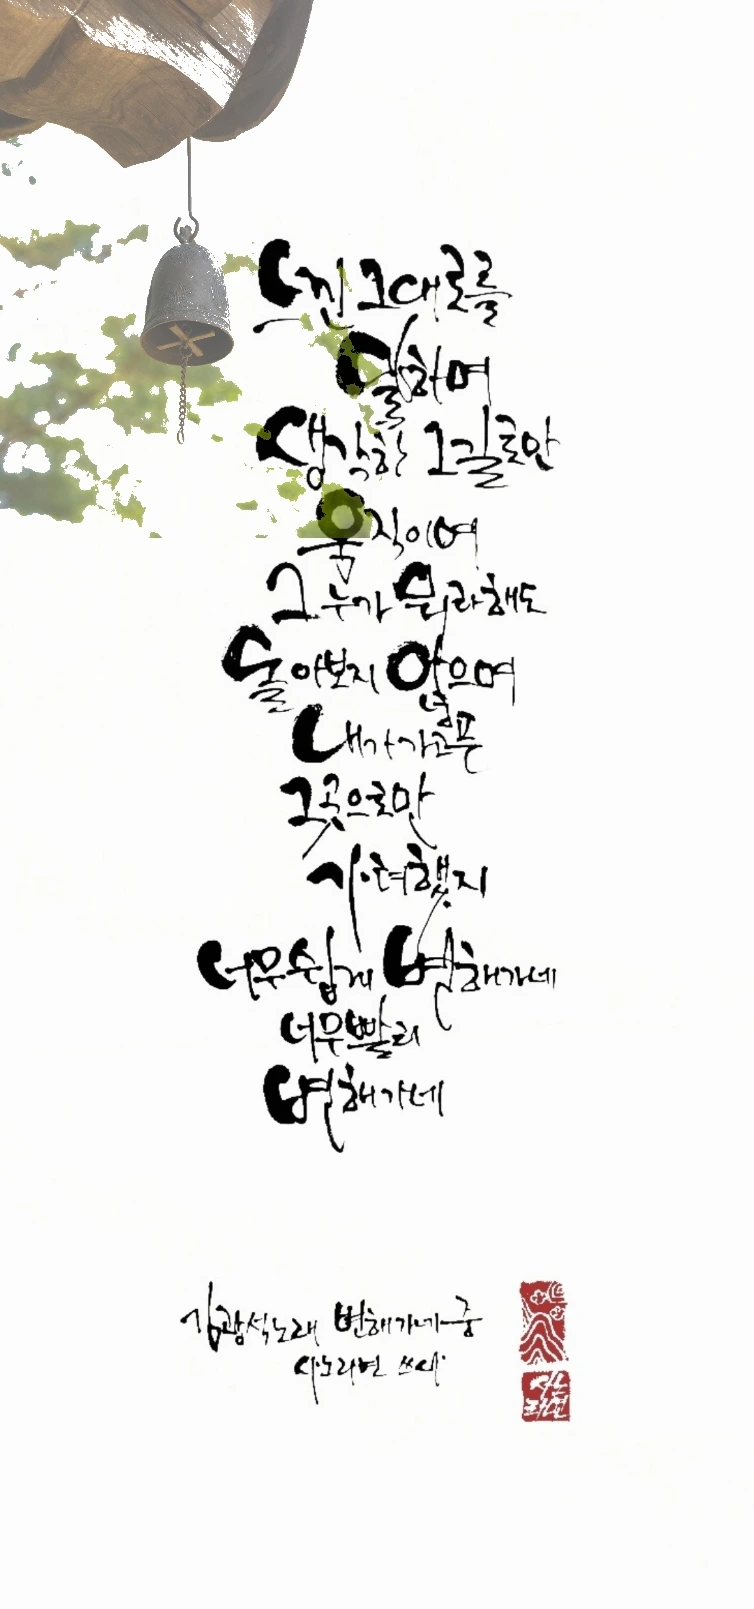 느낀 그대로를
말하며
생각한 그길로만
움직이며
그 누가 뭐라해도
돌아보지 않으며
내가 가고픈
그곳으로만
가려했지
너무쉽게 변해가네
너무빨리
변해가네
김광석노래 변해가네 중